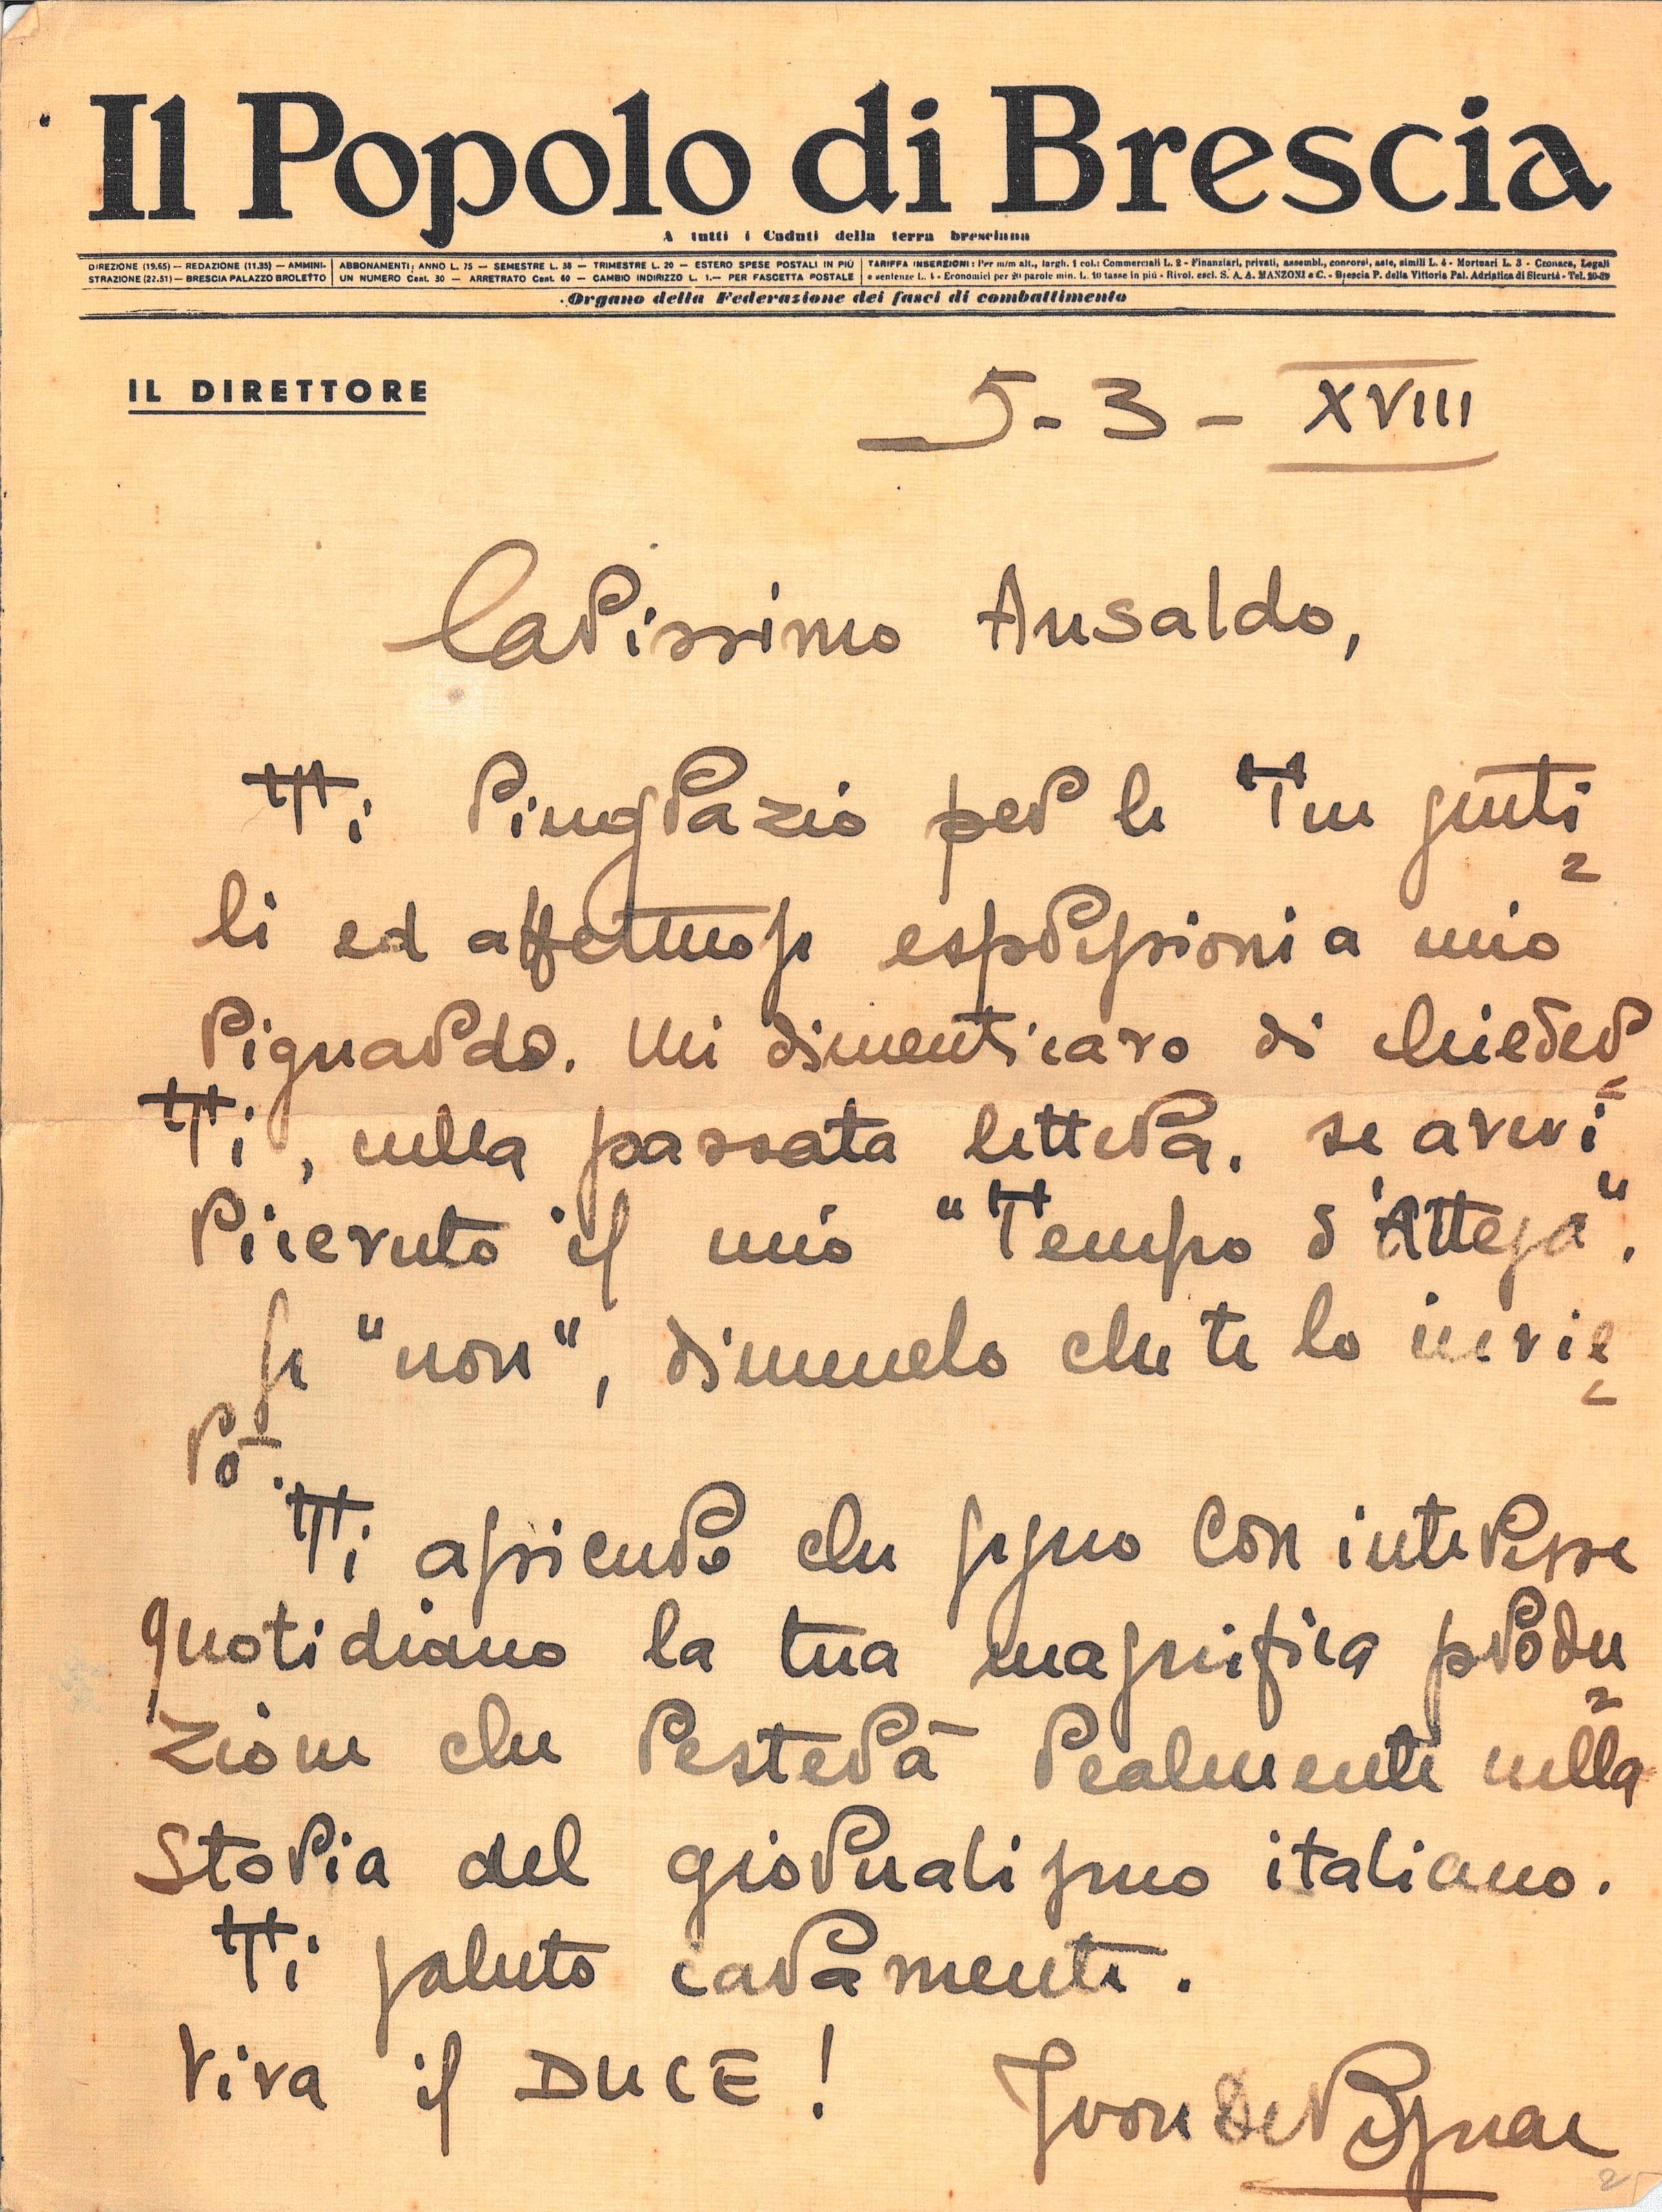 Il Popolo di Brescia
A tutti i Caduti della terra bresciana
DIREZIONE (19.65) — REDAZIONE (11.35) — AMMINI-
STRAZIONE (22.51) — BRESCIA PALAZZO BROLETTO
ABBONAMENTI: ANNO L. 75 — SEMESTRE L. 38 — TRIMESTRE L. 20 — ESTERO SPESE POSTALI IN PIÙ
UN NUMERO Cent. 30 — ARRETRATO Cent. 60 — CAMBIO INDIRIZZO L. 1.— PER FASCETTA POSTALE
TARIFFA INSERZIONI: Per m/m alt., largh. 1 col.: Commerciali L. 2 - Finanziari, privati, assembl., concorsi, aste, simili L. 4 - Mortuari L. 3 - Cronaca, Legali
e sentenze L. 4 - Economici per 20 parole min. L. 10 tasse in più - Rivol. escl. S. A. A. MANZONI e C. - Brescia P. della Vittoria Pal. Adriatica di Sicurtà - Tel. 20-29
Organo della Federazione dei fasci di combattimento
IL DIRETTORE
5 - 3 - XVIII
Carissimo Ansaldo,
Ti ringrazio per le Tue genti=
li ed affettuose espressioni a mio
riguardo. Mi dimenticavo di chieder=
Ti, nella passata lettera, se avevi
ricevuto il mio "Tempo d'Attesa".
Se "non", dimmelo che te lo invie=
rò.
Ti assicuro che seguo con interesse
quotidiano la tua magnifica produ=
zione che resterà realmente nella
storia del giornalismo italiano.
Ti saluto caramente.
Viva il DUCE!
Yvon De Begnac